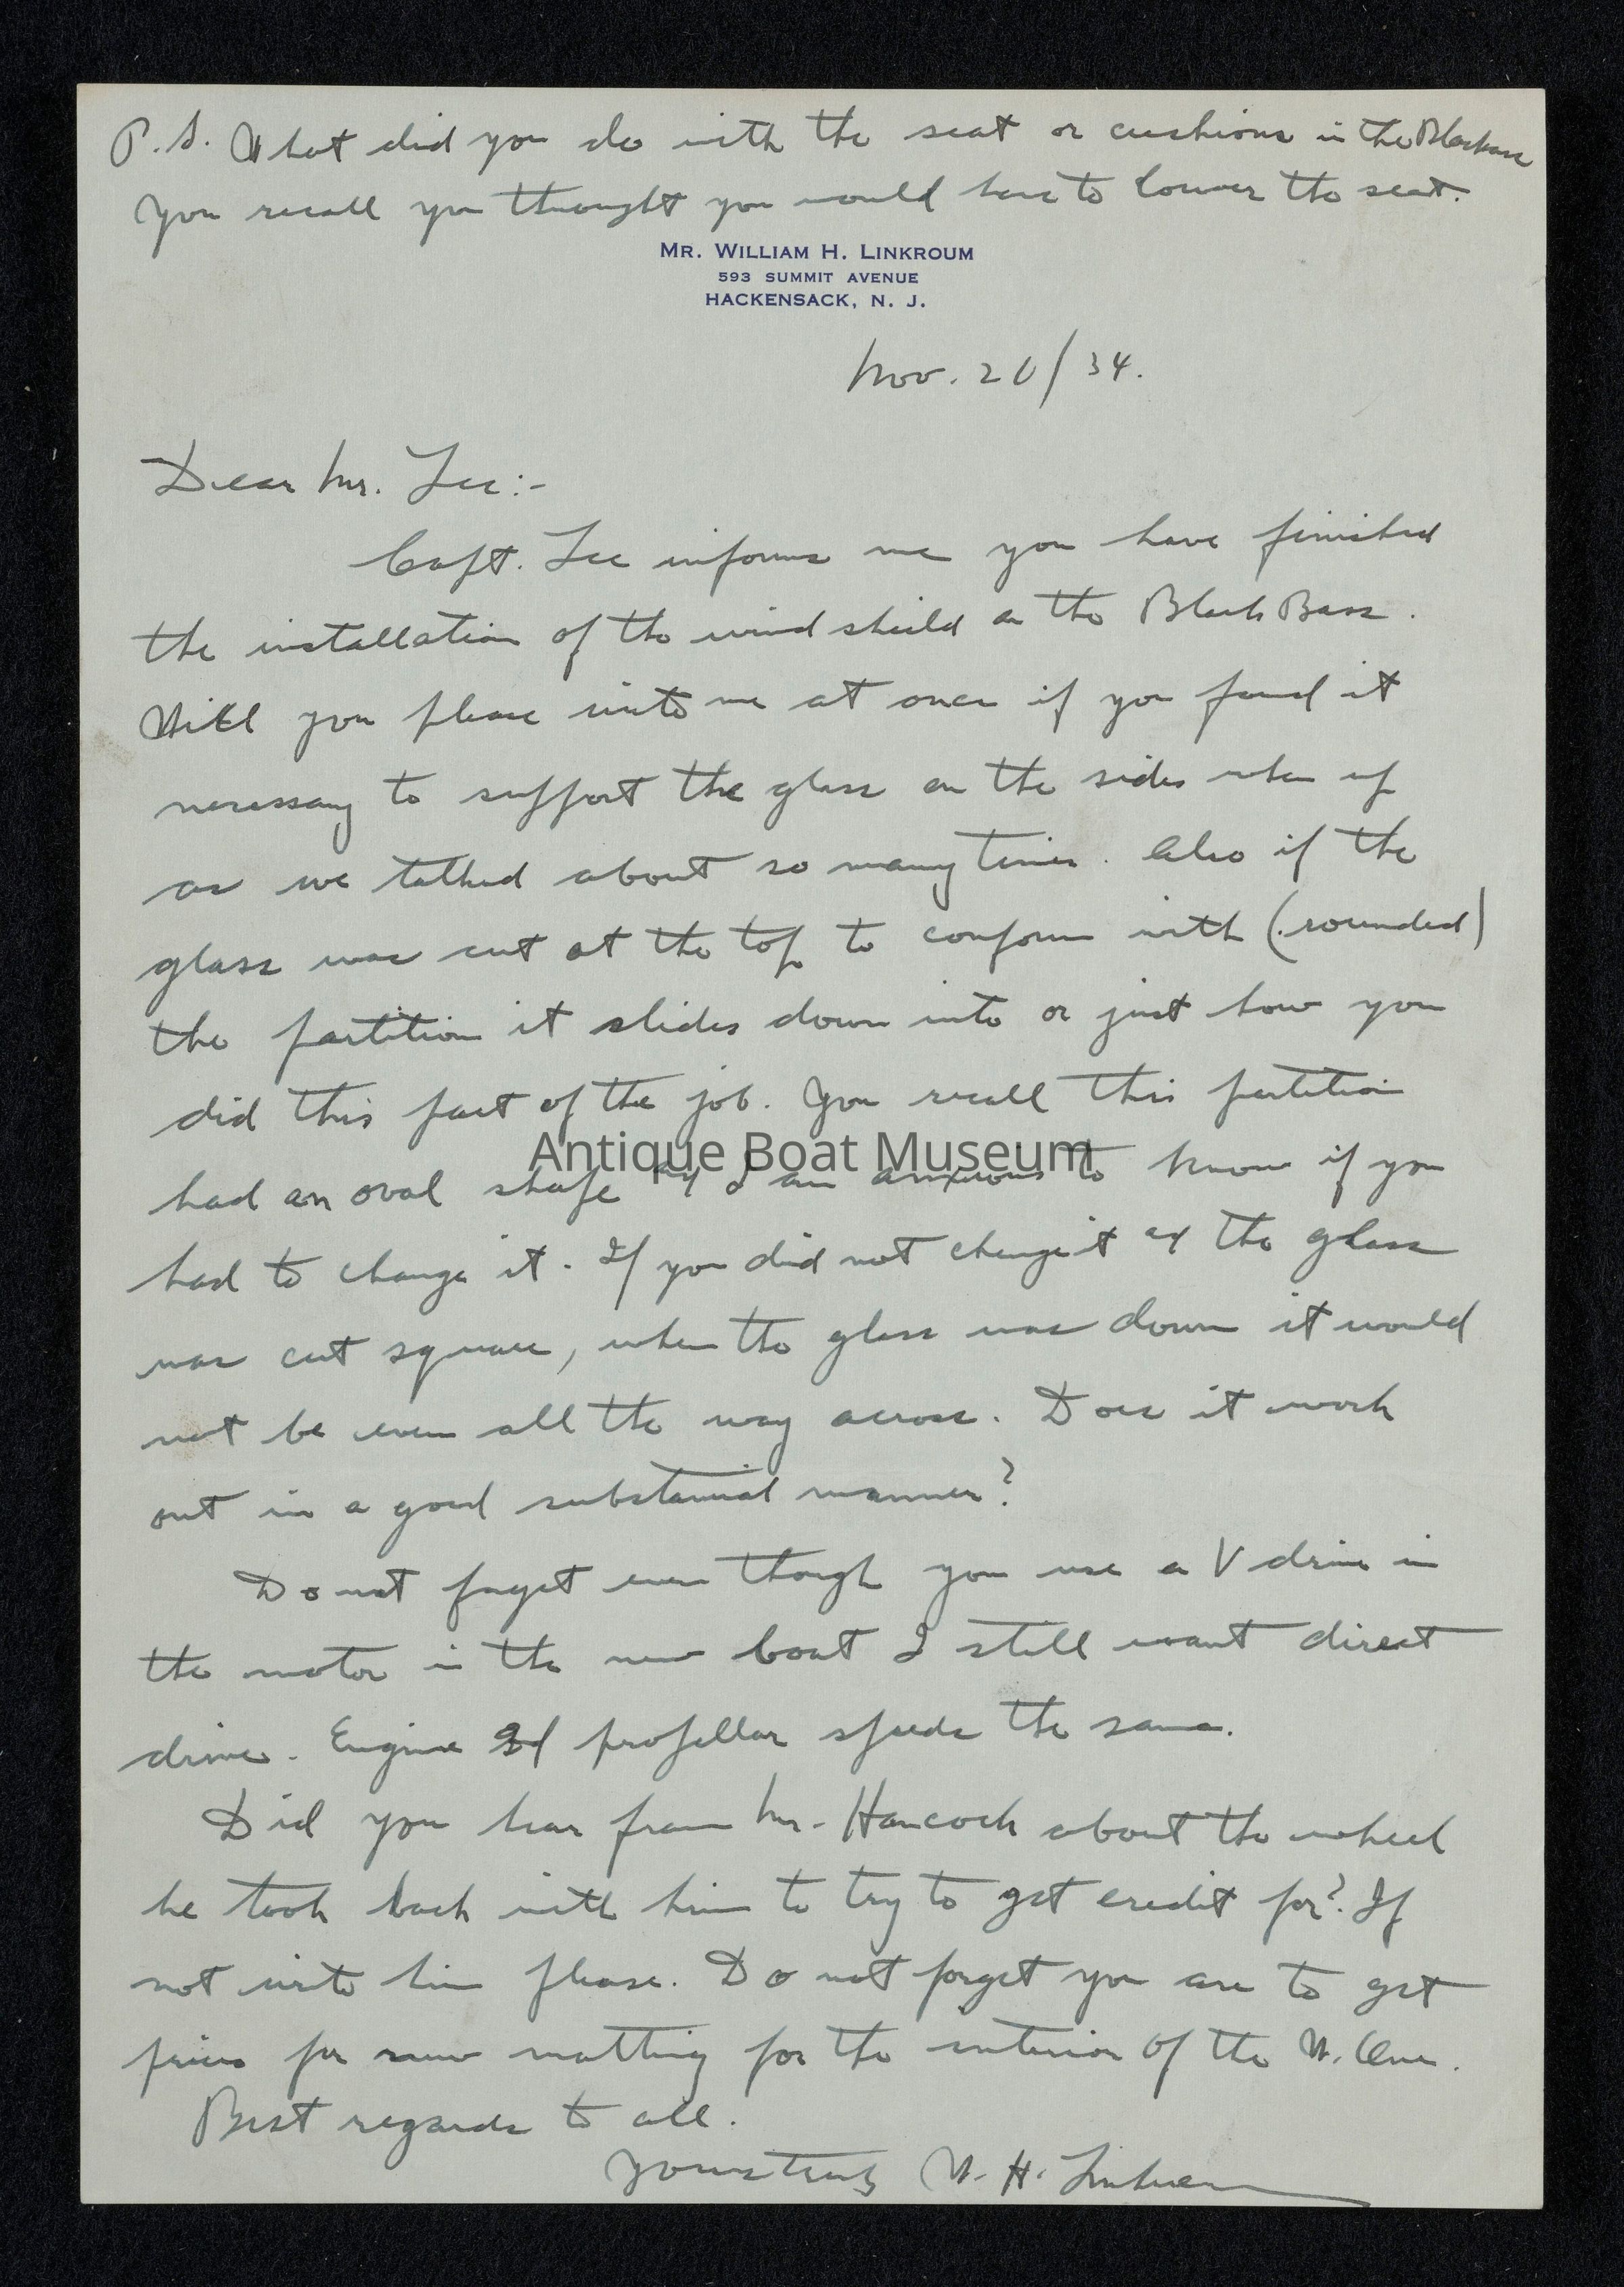 P.S. What did you do with the seat or cushions in the Blackbass
You recall you thought you would have to lower the seat.
MR. WILLIAM H. LINKROUM
593 SUMMIT AVENUE
HACKENSACK, N. J.
Nov. 20/34.
Dear Mr. Lee:-
Capt. Lee informs me you have finished
the installation of the wind shield on the Black Bass.
Will you please write me at once if you found it
necessary to support the glass on the sides when up
as we talked about so many times. Also if the
glass was cut at the top to conform with (rounded)
the partition it slides down into or just how you
did this part of the job. You recall this partition
Antique Boat Museum
had an oval shape & I am anxious to know if you
had to change it. If you did not change it & the glass
was cut square, when the glass was down it would
not be even all the way across. Does it work
out in a good substantial manner?
Do not forget even though you use a V drive in
the motor in the new boat I still want direct
drive. Engine & propellar speeds the same.
Did you hear from Mr. Hancock about the wheel
he took back with him to try to get credit for? If
not write him please. Do not forget you are to get
prices for new matting for the interior of the
Best regards to all.
Yours truly W. H. Linkroum